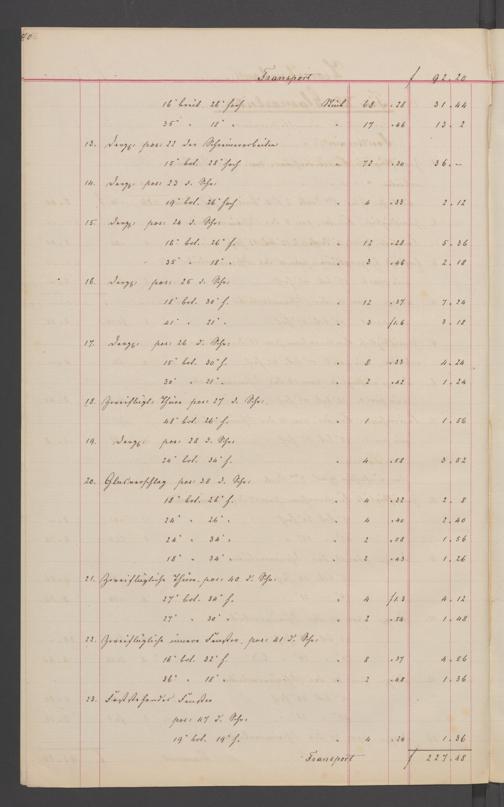 Transport f 92.20
16" breit. 26" hoch Stück 68 .28 31.44
35" " 18" " " 17 .46 13.2
13. Dergg: pos: 22 der Schreinerarbeiten
15" br. 28" hoch " 72 .30 36.–
14. Dergg: pos: 23 d. Schr:
19" br. 26" hoch " 4 .33 2.12
15. Dergg: pos: 24 d. Schr:
16" br. 26" h. " 12 .28 5.36
35" " 18" " " 3 .46 2.18
16. Dergg: pos: 25 d. Schr:
18" br. 30" h. " 12 .37 7.24
41" " 21" " " 3 f1.6 3.18
17. Dergg: pos: 26 d. Schr:
15" br. 30" h. " 8 .33 4.24
30" " 21" " " 2 .42 1.24
18. Zweiflügl: Thüre pos: 27 d. Schr:
48" br. 26" h. " 1 1.56
19. Dergg: pos: 28 d. Schr:
24" br. 34" h. " 4 .58 3.52
20. Glasverschlag pos: 38 d. Schr:
18" br. 26" h. " 4 .32 2.8
24" " 26" " " 4 .40 2.40
24" " 34" " " 2 .58 1.56
18" " 34" " " 2 .43 1.26
21. Zweiflügliche Thüre pos: 40 d. Schr:
27" br. 34" h. " 4 f1.3 4.12
27" " 30" " " 2 .54 1.48
22. Zweiflügliche innere Fenster pos: 41 d. Schr:
16" br. 32" h. " 8 .37 4.56
36" " 18" " " 2 .48 1.36
23. Feststehendes Fenster
pos: 47 d. Schr:
19" br. 19" h. " 4 .24 1.36
Transport f 227.48